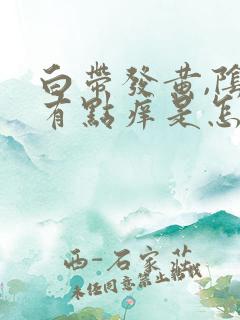 白帶發黃,陰
有點痒是怎
西-石家莊
未经同意禁止转载